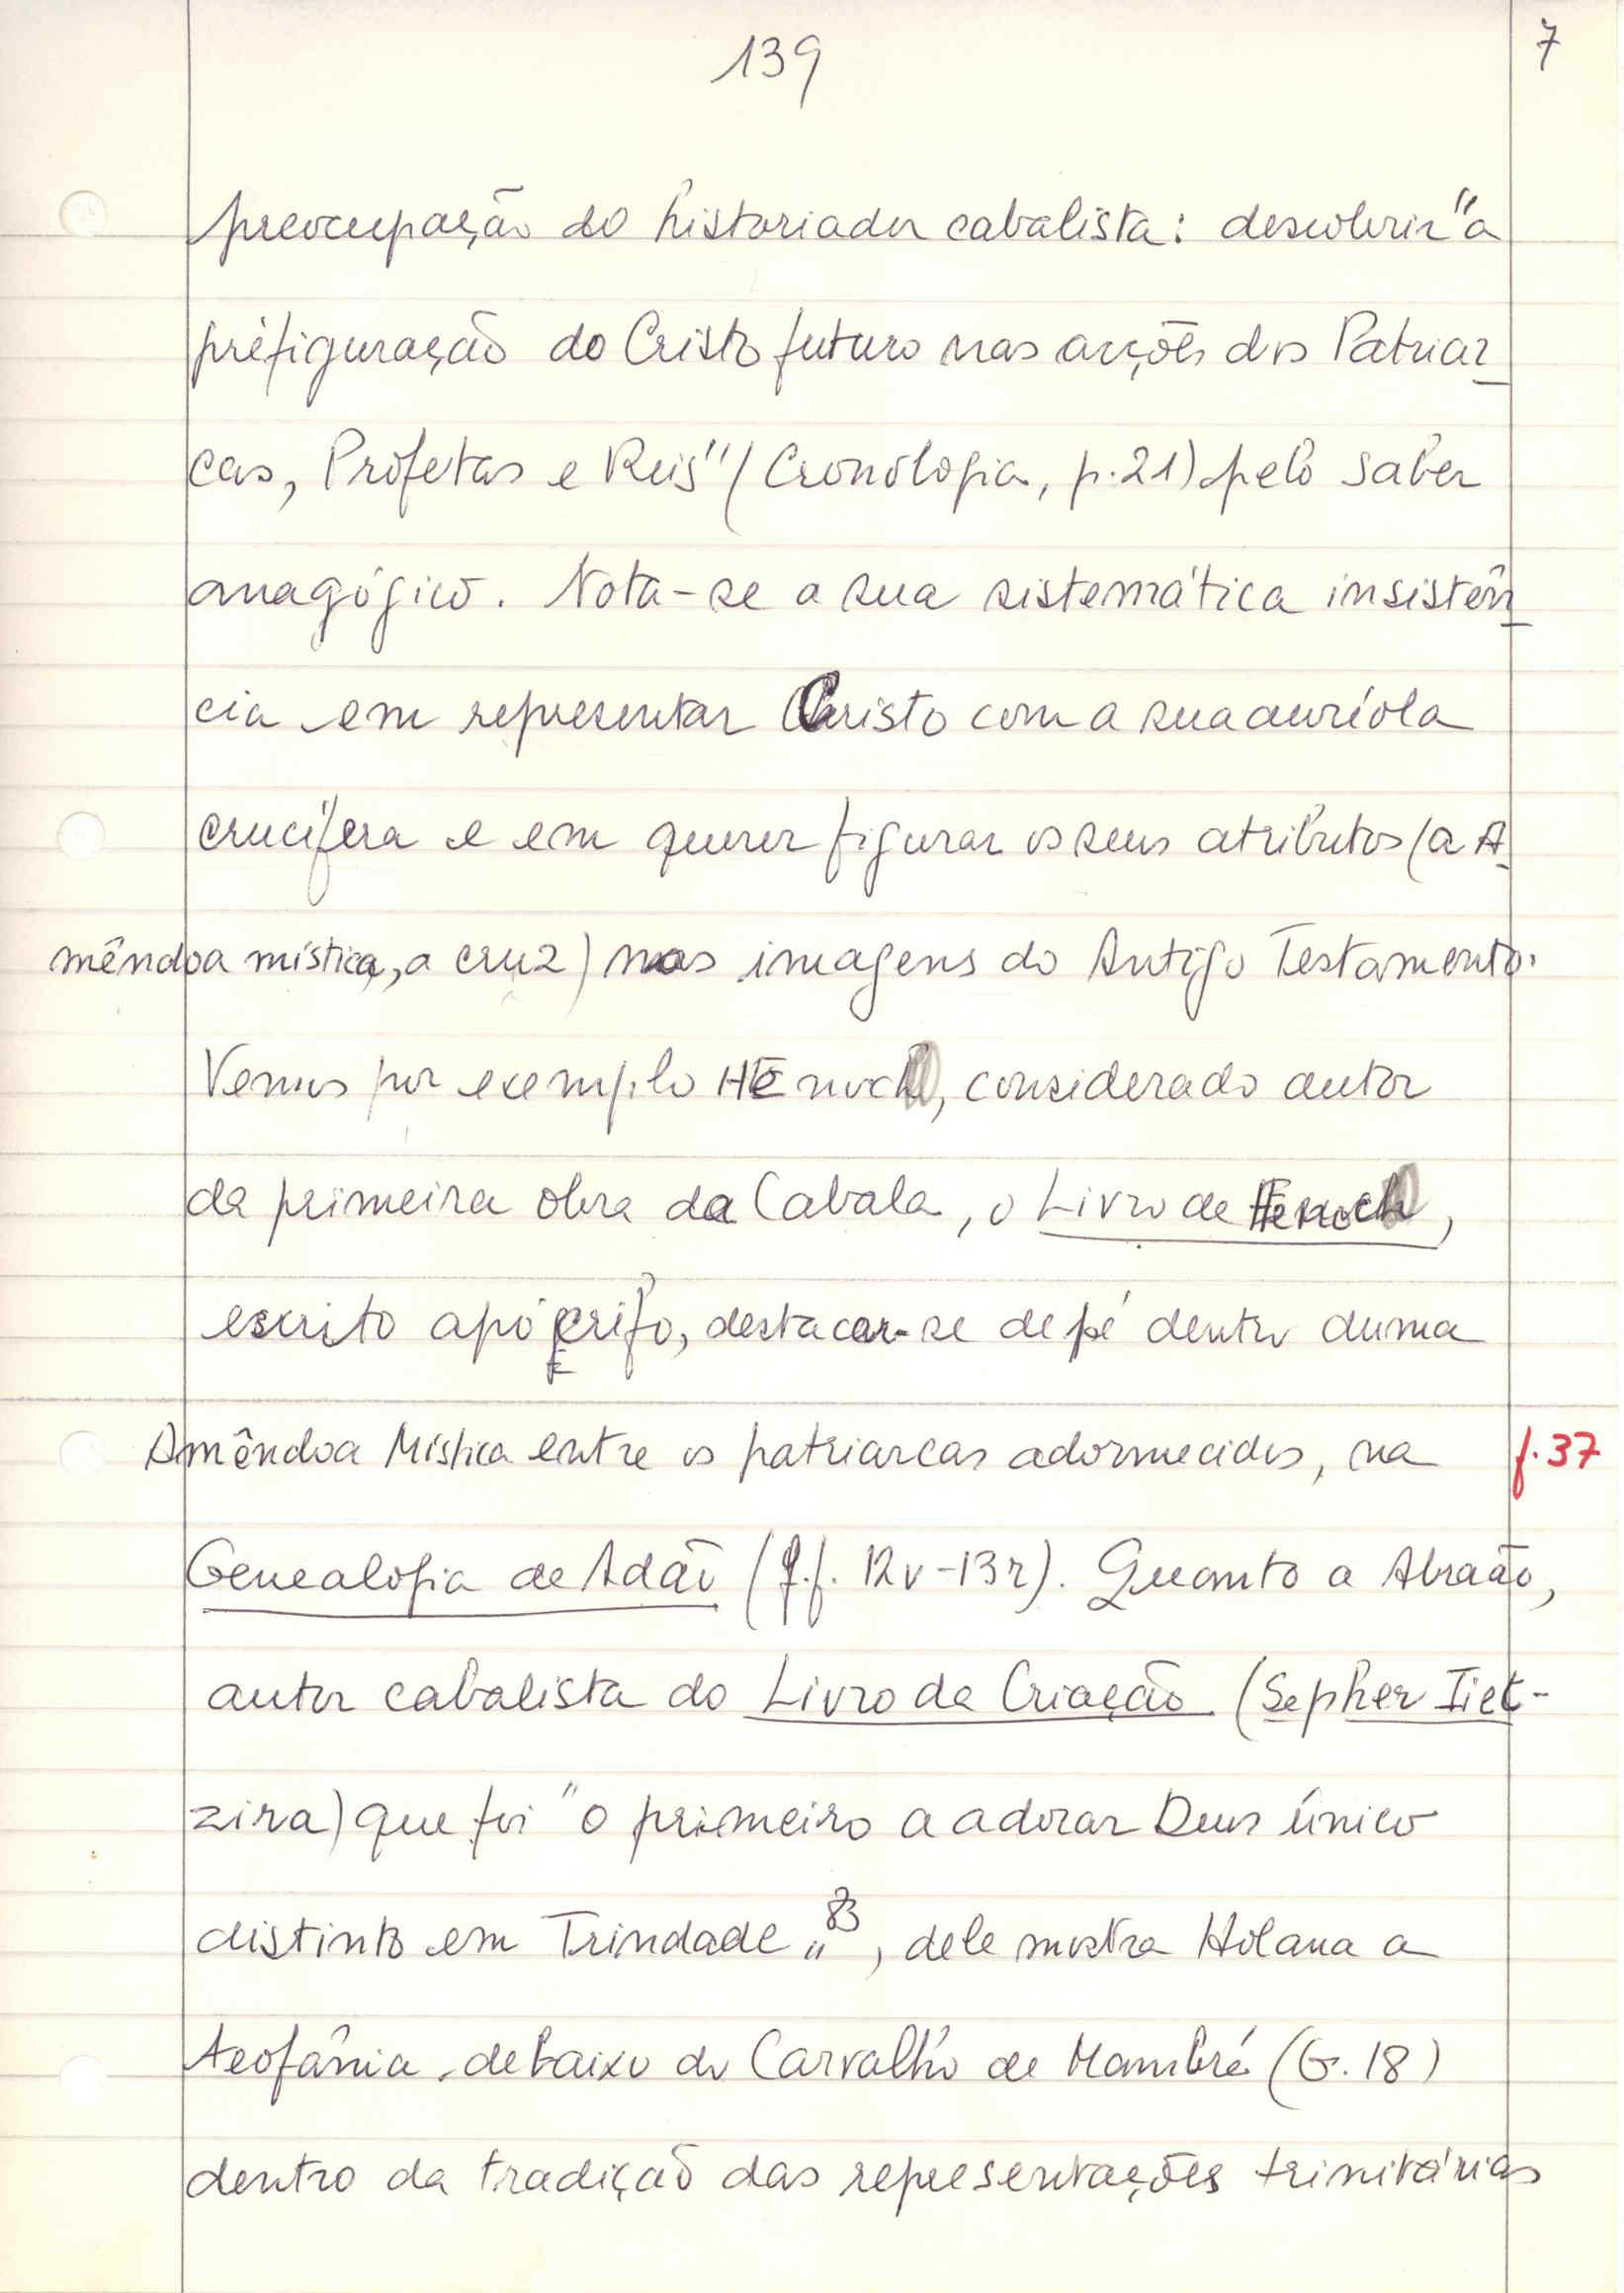 139
7
preocupação do historiador cabalista: descobrir "a
préfiguração do Cristo futuro nas acções dos Patriar
cas, Profetas e Reis" (Cronologia, p.21) pelo saber
anagógico. Nota-se a sua sistemática insistên
cia em representar Cristo com a sua auríola
crucífera e em querer figurar os seus atributos (a A
mêndoa mística, a cruz) nas imagens do Antigo Testamento.
Vemos por exemplo HEnoch, considerado autor
da primeira obra da Cabala, o Livro de Henoch,
escrito apócrifo, destacar-se de pé dentro duma
Amêndoa Mística entre os patriarcas adormecidos, na
f. 37
Genealogia de Adão (f.f. 12v-13r). Quanto a Abraão,
autor cabalista do Livro da Criação (Sepher Iiet-
zira) que foi "o primeiro a adorar Deus único
distinto em Trindade"83, dele mostra Holana a
teofânia debaixo do Carvalho de Mambré (G. 18)
dentro da tradição das representações trinitárias